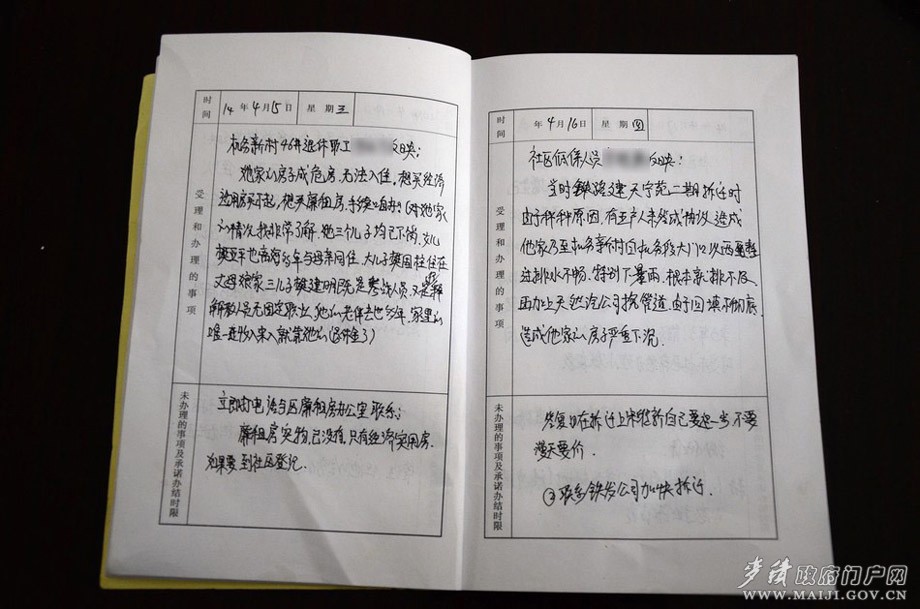 时间
14年4月15日
星期三
受理和办理的事项
机务新村46栋退休职工 反映:
她家的房子成危房,无法入住。想买经济
适用房买不起,想买廉租房,手续 (对她家
的情况我非常了解,她三个儿子均已下岗,女儿
也离婚多年与母亲同住,大儿子 住在
丈母娘家,三儿子 既是 人员,又是
解教人员无固定职业,她的老伴去世多年,家里的
唯一一点收入来源就靠她的
未办理的事项及承诺办结时限
立即打电话与区廉租房办公室联系:
廉租房实物已没有,只有经济实用房,
如果要到社区登记。
时间
年4月16日
星期四
受理和办理的事项
社区低保人员 反映:
当时铁路建天宁苑二期拆迁时
由于种种原因,有五户人未达成协议,造成
他家乃至机务新村 机务段大门口以西
排水不畅,特别下暴雨,根本就排不及,
再加上天然气公司挖管道,由于回填不彻底,
造成他家的房子严重下沉。
未办理的事项及承诺办结时限
答复①在拆迁上来维护自己 不要
漫天要价。
②联系铁发公司加快拆迁。
麦积政府门户网
WWW.MAIJI.GOV.CN